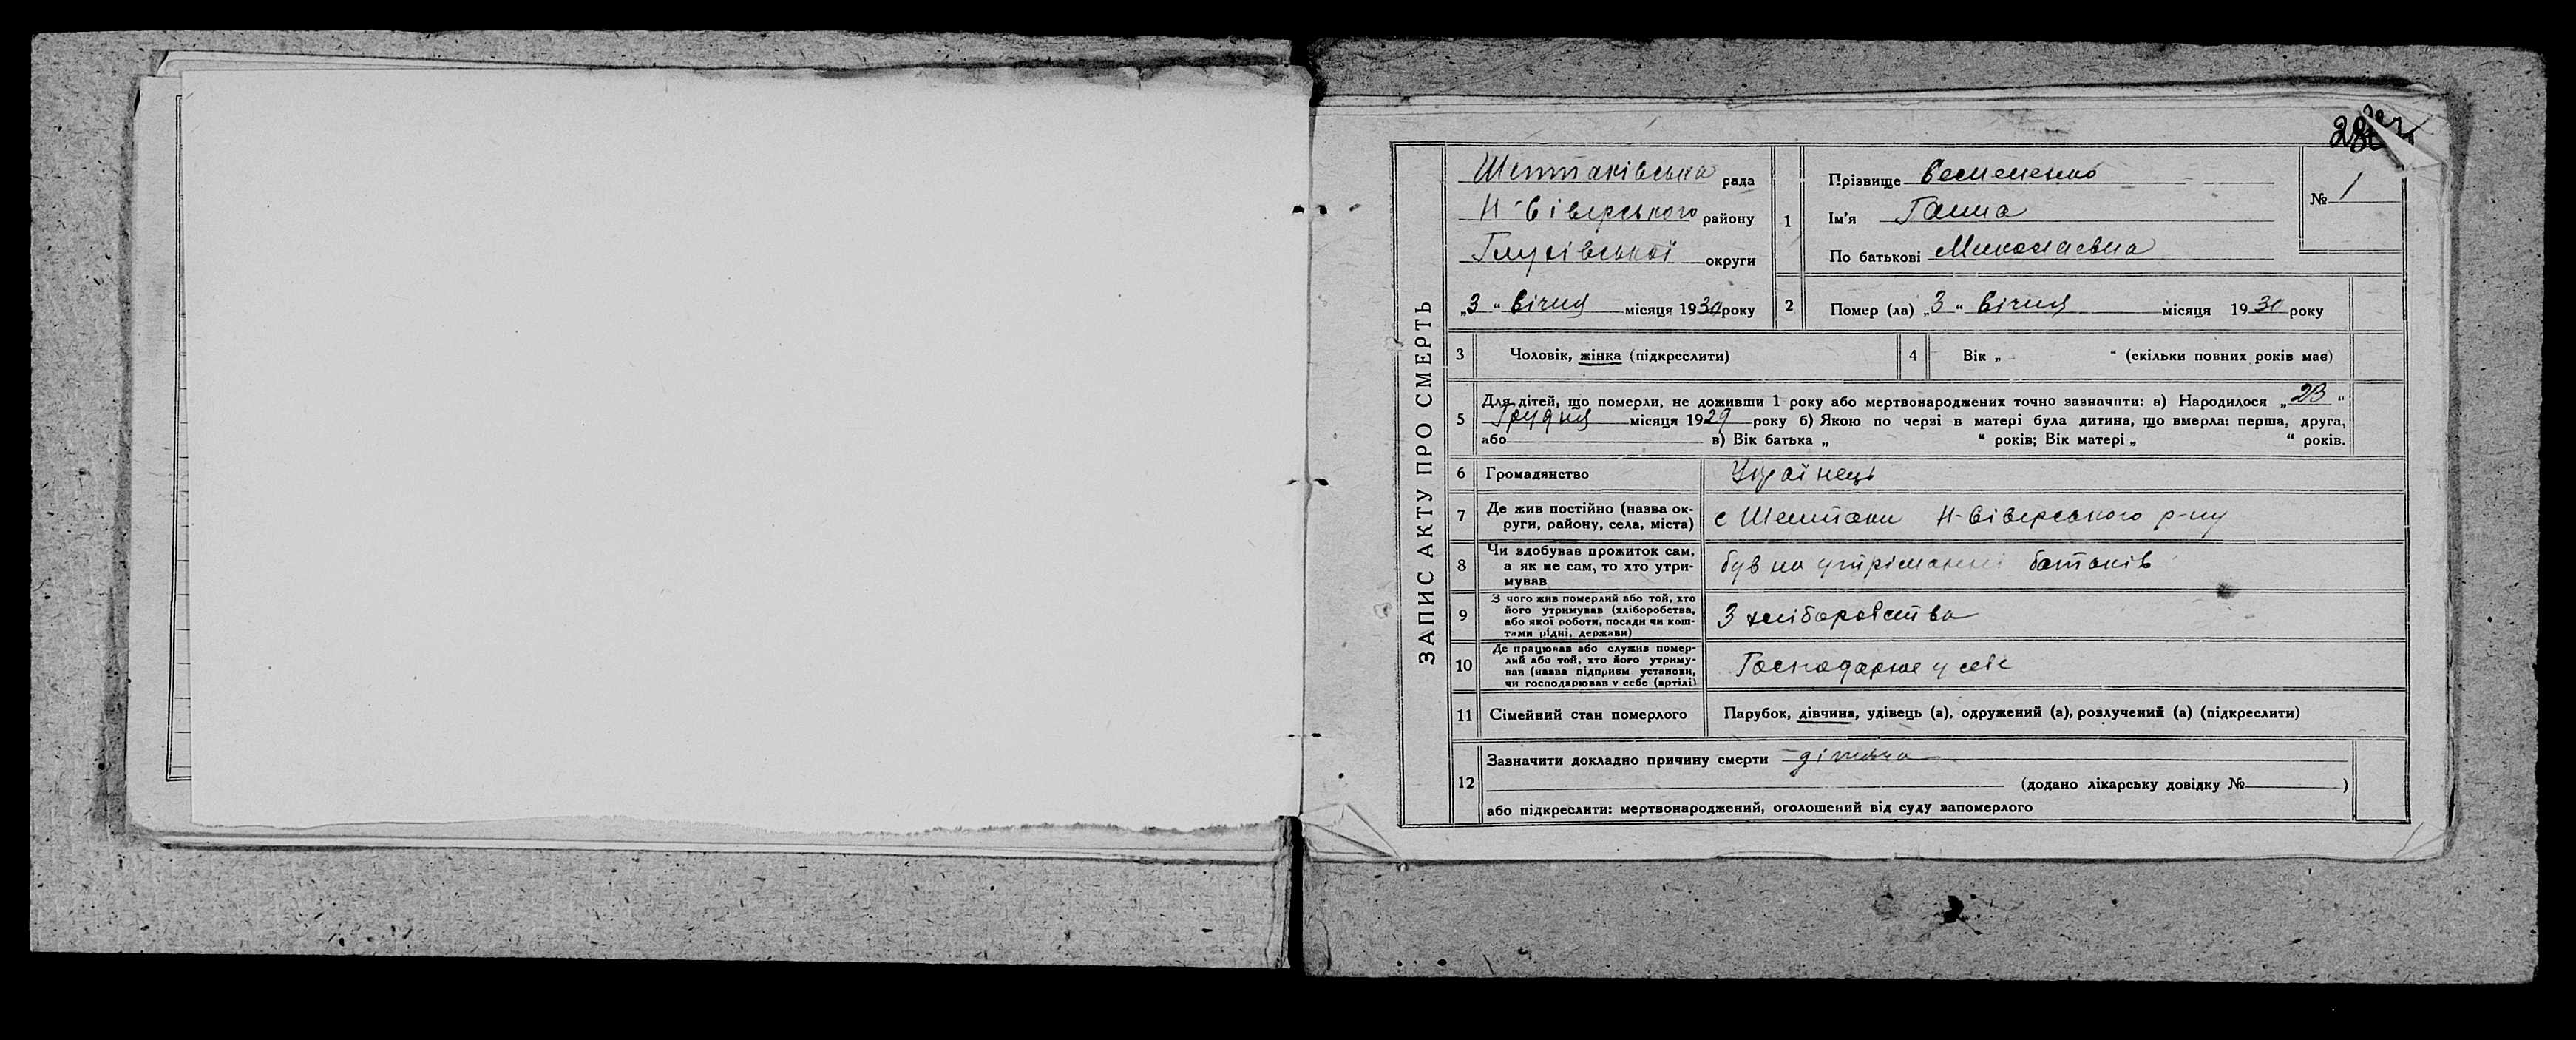 ЗАПИС АКТУ ПРО СМЕРТЬ
Шептаківська рада
Н-Сіверського району
Глухівської округи
„3“ Січня місяця 1930 року
1
Прізвище
Ім'я Ганна
По батькові Миколаевна
№ 1
2 Помер (ла) „3“ Січня місяця 1930 року
3 Чоловік, жінка (підкреслити)
4 Вік „ “ (скільки повних років має)
5 Для дітей, що померли, не доживши 1 року або мертвонароджених точно зазначити: а) Народилося „23“
Грудня місяця 1929 року б) Якою по черзі в матері була дитина, що вмерла: перша, друга,
або в) Вік батька „ “ років; Вік матері „ “ років.
6 Громадянство Українець
7 Де жив постійно (назва ок-
руги, району, села, міста) с Шептаки Н-Сіверського р-ну
8 Чи здобував прожиток сам,
а як не сам, то хто утри-
мував був на утріманні батьків
9 З чого жив померлий або той, хто
його утримував (хліборобства,
або якої роботи, посади чи кош-
тами рідні, держави) З хліборобства
10 Де працював або служив помер-
лий або той, хто його утриму-
вав (назва підприєм установи,
чи господарював у себе (артілі) Господарює у себе
11 Сімейний стан померлого Парубок, дівчина, удівець (а), одружений (а), розлучений (а) (підкреслити)
12 Зазначити докладно причину смерти
(додано лікарську довідку № )
або підкреслити: мертвонароджений, оголошений від суду запомерлого